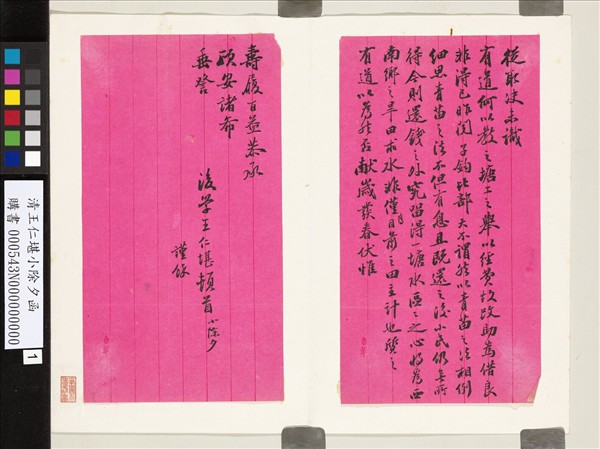 從取決未識
有道何以教之塘工之舉以經費故改助為借良
非得已昨閱子鈞比部大不謂然以青苗之法相例
細思青苗之法不但有息且既還之後小民仍無所
得今則還錢之外究留得一塘水區區之心將為西
南鄉之旱田求水非僅為目前之田主計也質之
有道以為然否獻歲發春伏惟
壽履百益恭承
頤安諸希
垂詧
後學王仁堪頓首 小除夕
謹啟
清王仁堪小除夕函
購書 000543N000000000
1